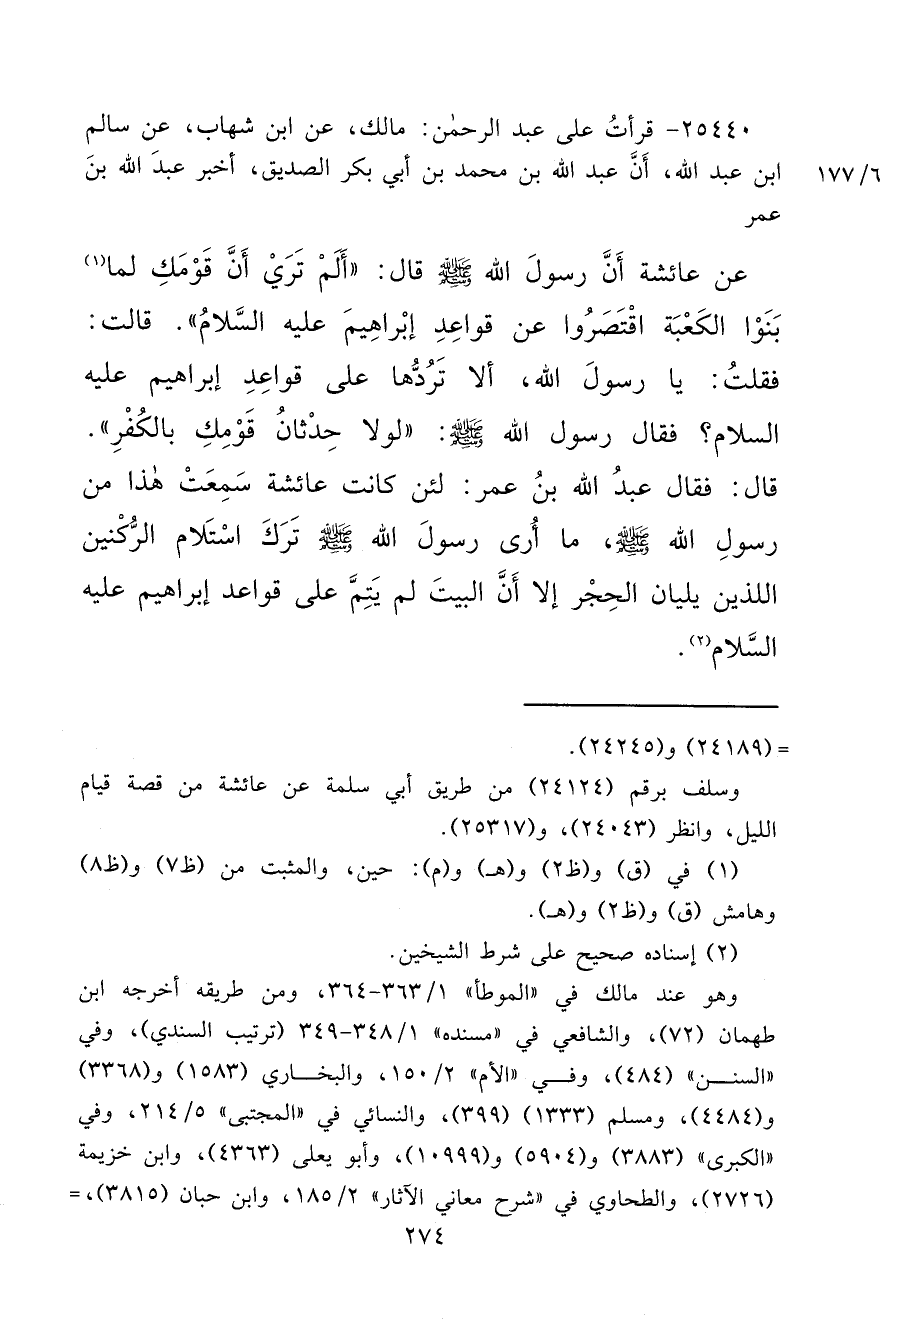 ٢٥٤٤٠- قرأتُ على عبد الرحمٰن: مالك، عن ابن شهاب، عن سالم
١٧٧/٦ ابن عبد الله، أنَّ عبد الله بن محمد بن أبي بكر الصديق، أخبر عبدَ الله بنَ
عمر
عن عائشة أنَّ رسولَ الله ﷺ قال: «أَلَمْ تَرَيْ أَنَّ قَوْمَكِ لما(١)
بَنَوْا الكَعْبَة اقْتَصَرُوا عن قواعِدِ إبْراهِيمَ عليه السَّلامُ». قالت:
فقلتُ: يا رسولَ الله، ألا تَرُدُّها على قواعِدِ إبراهيم عليه
السلام؟ فقال رسول الله ﷺ: «لولا حِدْثانُ قَوْمِكِ بالكُفْرِ».
قال: فقال عبدُ الله بنُ عمر: لئن كانت عائشة سَمِعَتْ هٰذا من
رسولِ الله ﷺ، ما أُرى رسولَ الله ﷺ تَرَكَ اسْتَلام الرُّكْنين
اللذين يليان الحِجْر إلا أنَّ البيتَ لم يَتِمَّ على قواعد إبراهيم عليه
السَّلام(٢).
= (٢٤١٨٩) و(٢٤٢٤٥).
وسلف برقم (٢٤١٢٤) من طريق أبي سلمة عن عائشة من قصة قيام
الليل، وانظر (٢٤٠٤٣)، و(٢٥٣١٧).
(١) في (ق) و(ظ٢) و(هـ) و(م): حين، والمثبت من (ظ٧) و(ظ٨)
وهامش (ق) و(ظ٢) و(هـ).
(٢) إسناده صحيح على شرط الشيخين.
وهو عند مالك في «الموطأ» ٣٦٣/١-٣٦٤، ومن طريقه أخرجه ابن
طهمان (٧٢)، والشافعي في «مسنده» ٣٤٨/١-٣٤٩ (ترتيب السندي)، وفي
«السنـــن» (٤٨٤)، وفـــي «الأم» ١٥٠/٢، والبخـــاري (١٥٨٣) و(٣٣٦٨)
و(٤٤٨٤)، ومسلم (١٣٣٣) (٣٩٩)، والنسائي في «المجتبى» ٢١٤/٥، وفي
«الكبرى» (٣٨٨٣) و(٥٩٠٤) و(١٠٩٩٩)، وأبو يعلى (٤٣٦٣)، وابن خزيمة
(٢٧٢٦)، والطحاوي في «شرح معاني الآثار» ١٨٥/٢، وابن حبان (٣٨١٥)،=
٢٧٤